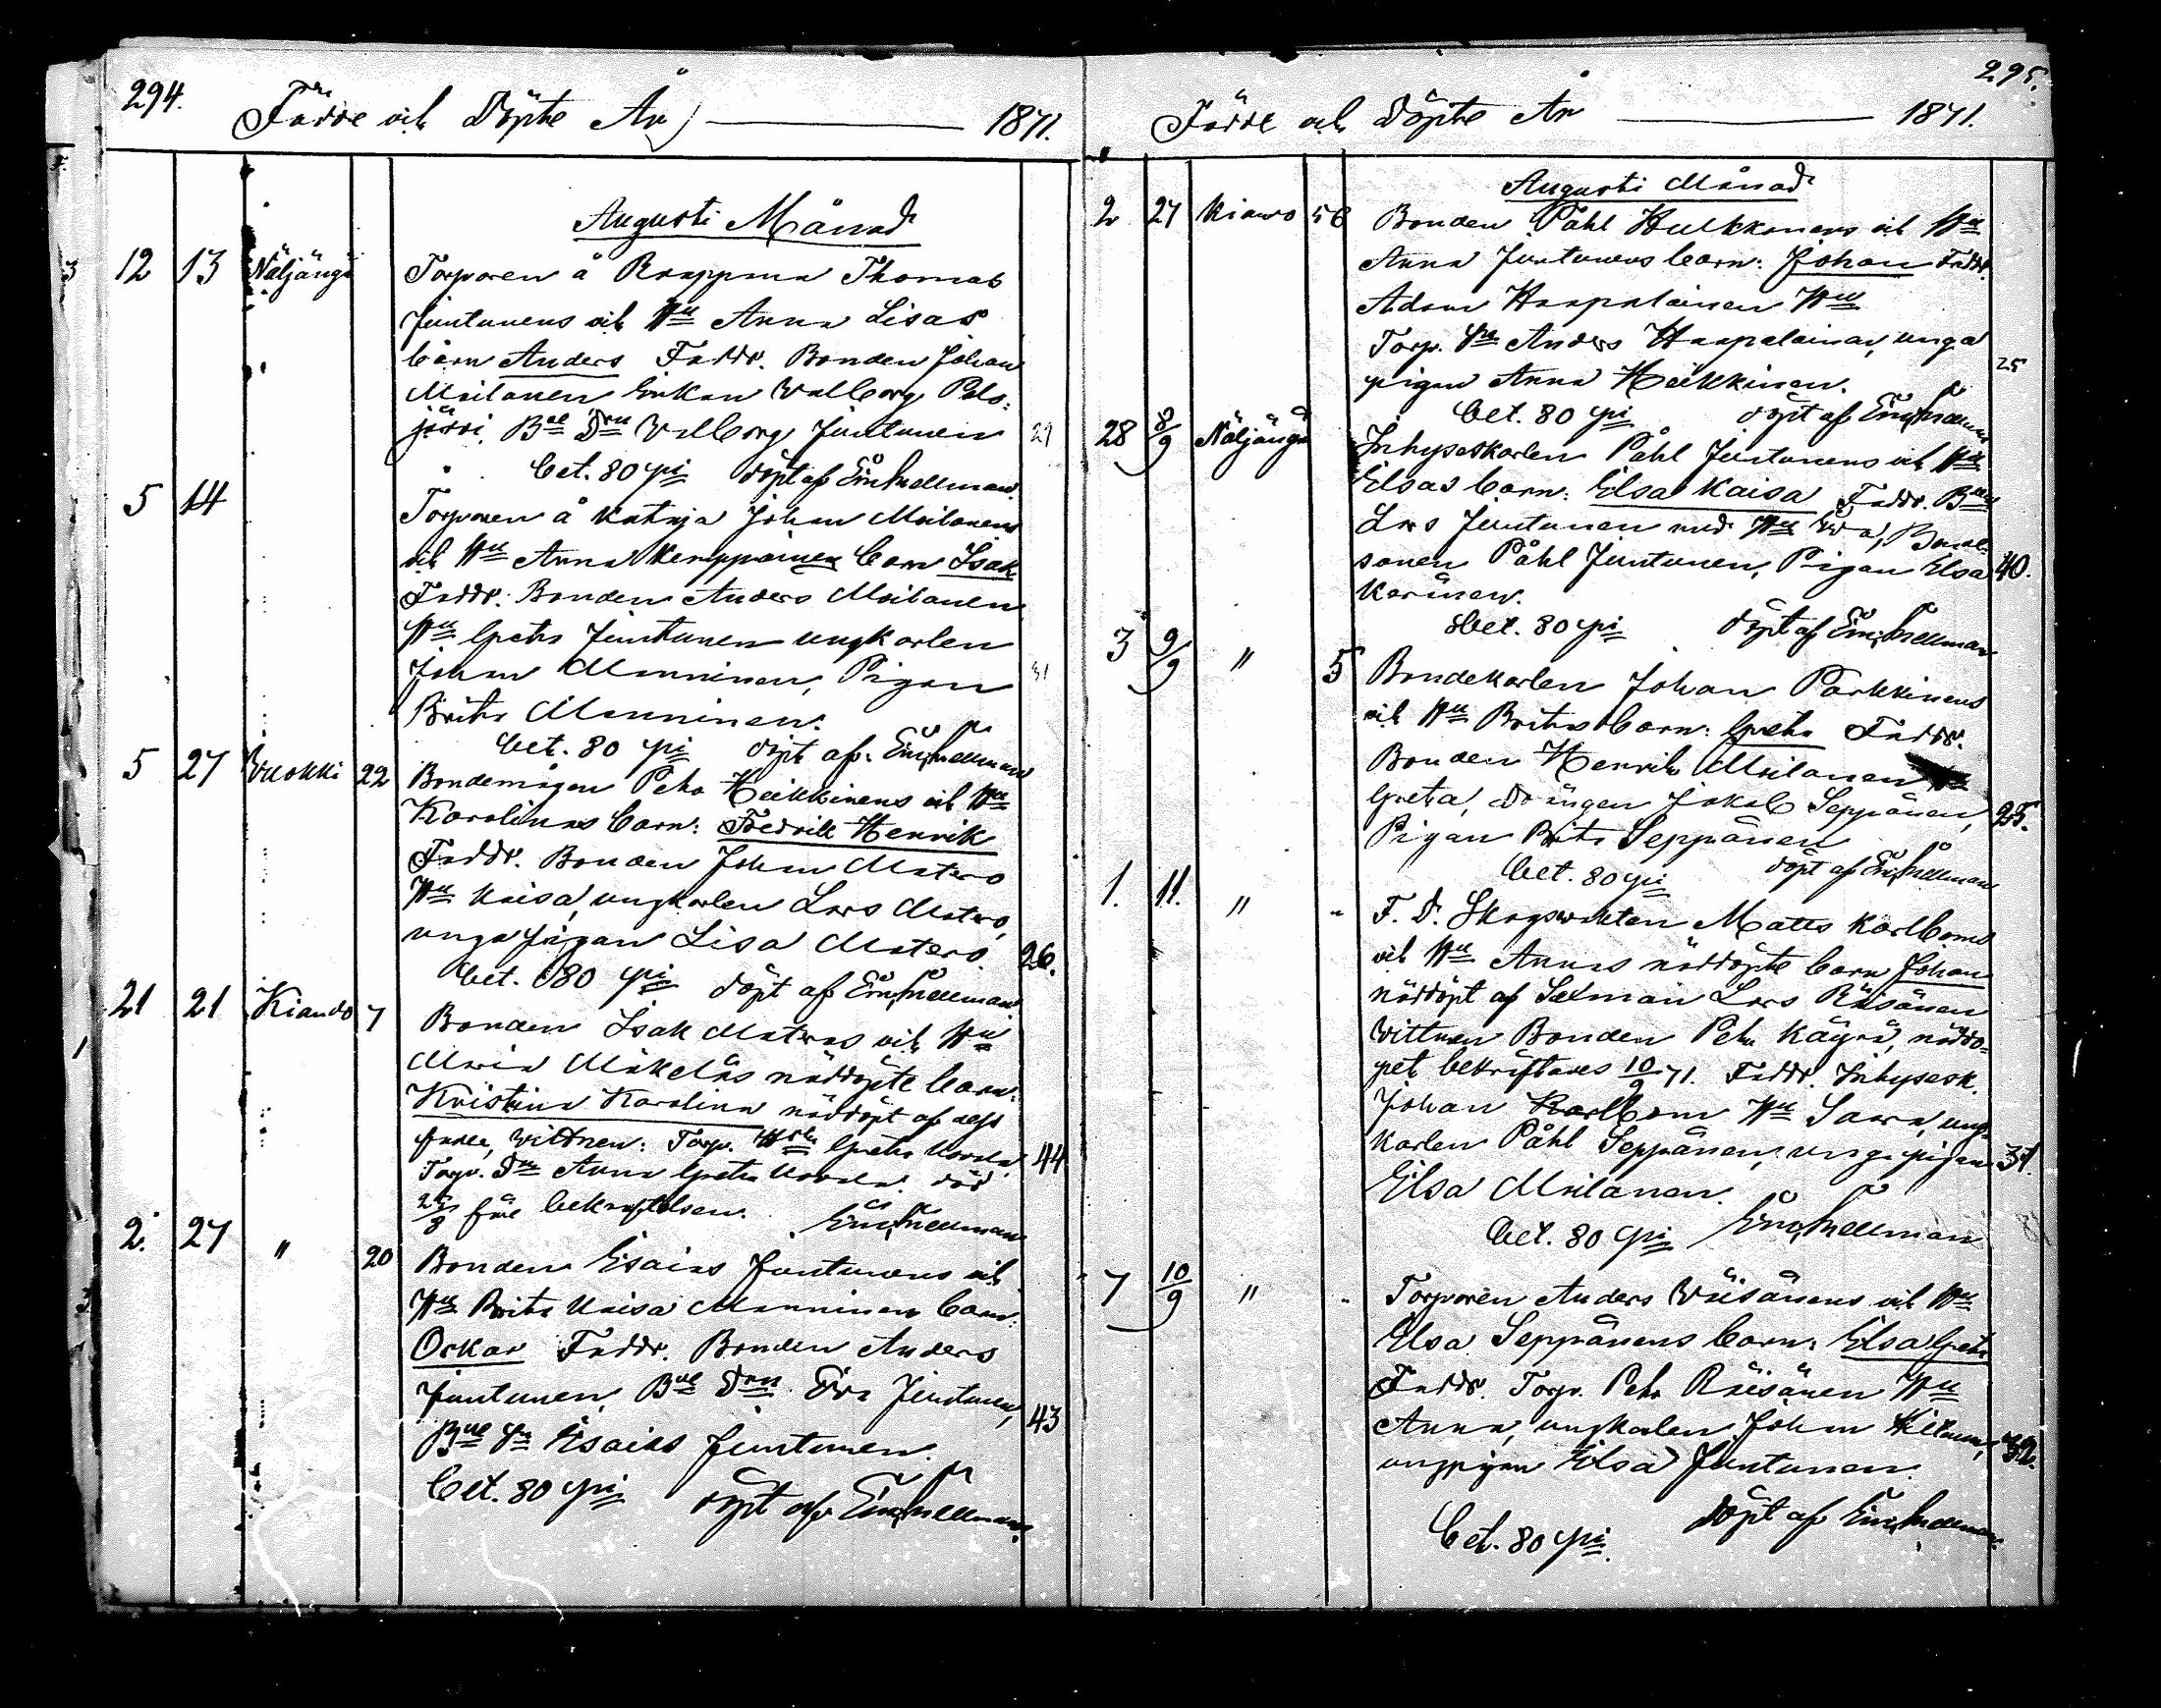 294.
Födde och Döpte År 1871.
Augusti Månad
12 13 Näljängä Torparen å Raappana Thomas
Juntunens och Hu Anna Lisas
barn Anders Faddr. Bonden Johan
Moilanen Enkan Valborg Palo-
järvi, Bde Drn Valborg Juntunen 29
bet. 80 pi döpt af Em Snellman.
5 14 Torparen å Kataja Johan Moilanens
och Hu Anna Kemppainen barn Isak
Faddr: Bonden Anders Moilanen
Hu Greta Juntunen ungkarlen
Johan Manninen, Pigan 31
Brita Manninen.
bet. 80 pi döpt af: Em Snellman
5 27 Vuokki 22 Bondemågen Pehr Heikkinens och Hu
Karolinas barn: Fredrik Henrik
Faddr. Bonden Johan Matero
Hu Kaisa, ungkarlen Lars Matero,
unga pigan Lisa Matero. 26.
bet. 80 pi döpt af Em Snellman
21 21 Kiando 7 Bonden Isak Materos och Hu
Maria Mäkeläs nöddöpte barn:
Kristina Karolina nöddöpt af dess
fader, Vittnen: Torp. Greta
Torp. Dr Anna Greta död 44
före bekräftelsen. Em Snellman
2. 27 " 20 Bonden Esaias Juntunens och
Hu Brita Kaisa Manninens barn:
Oskar Faddr. Bonden Anders
Juntunen, Bde Drn Eva Juntunen, 43
Bde Sn Esaias Juntunen.
bet. 80 pi döpt af Em Snellman.
295.
Födde och Döpte År 1871.
Augusti Månad
2 27 Kiando 56 Bonden Påhl Hulkkonens och Hu
Anna Juntunens barn: Johan Faddr.
Adam Haapalainen Hu
Torp. Sn Anders Haapalainen, unga
pigan Anna Heikkinen. 25
bet. 80 pi döpt af Em Snellman
28 8/9 Näljängä Inhyseskarlen Påhl Juntunens och Hu
Elsas barn: Elsa Kaisa Faddr. Bden
Lars Juntunen med Hu Eva, Bonde-
sonen Påhl Juntunen, Pigan Elsa 40.
Karinen.
bet. 80 pi döpt af Em Snellman
3 9/9 " 5 Bondekarlen Johan Parkkinens
och Hu Britas barn: Greta Faddr.
Bonden Henrik Moilanen
Greta, Drängen Jakob Seppänen, 25.
Pigan Brita Seppänen
bet. 80 pi döpt af Em Snellman
1. 11. " " F. D. Skogsvakten Matts Karlboms
och Hu Annas nöddöpte barn Johan
nöddöpt af Sexman Lars Räisänen
Vittnen Bonden Pehr Käyrä, nöddo-
pet bekräftades 10/9 71. Faddr. Inhysesk.
Johan Karlbom Hu Sara, ung-
karlen Påhl Seppänen, unga pigan 31.
Elsa Moilanen.
bet. 80 pi Em Snellman
7 10/9 " " Torparen Anders Väisänens och Hu
Elsa Seppänens barn: Elsa Greta
Faddr. Torp. Pehr Räisänen Hu
Anna, ungkarlen Johan
ungpigan Elsa Juntunen.
bet. 80 pi. döpt af Em Snellman.